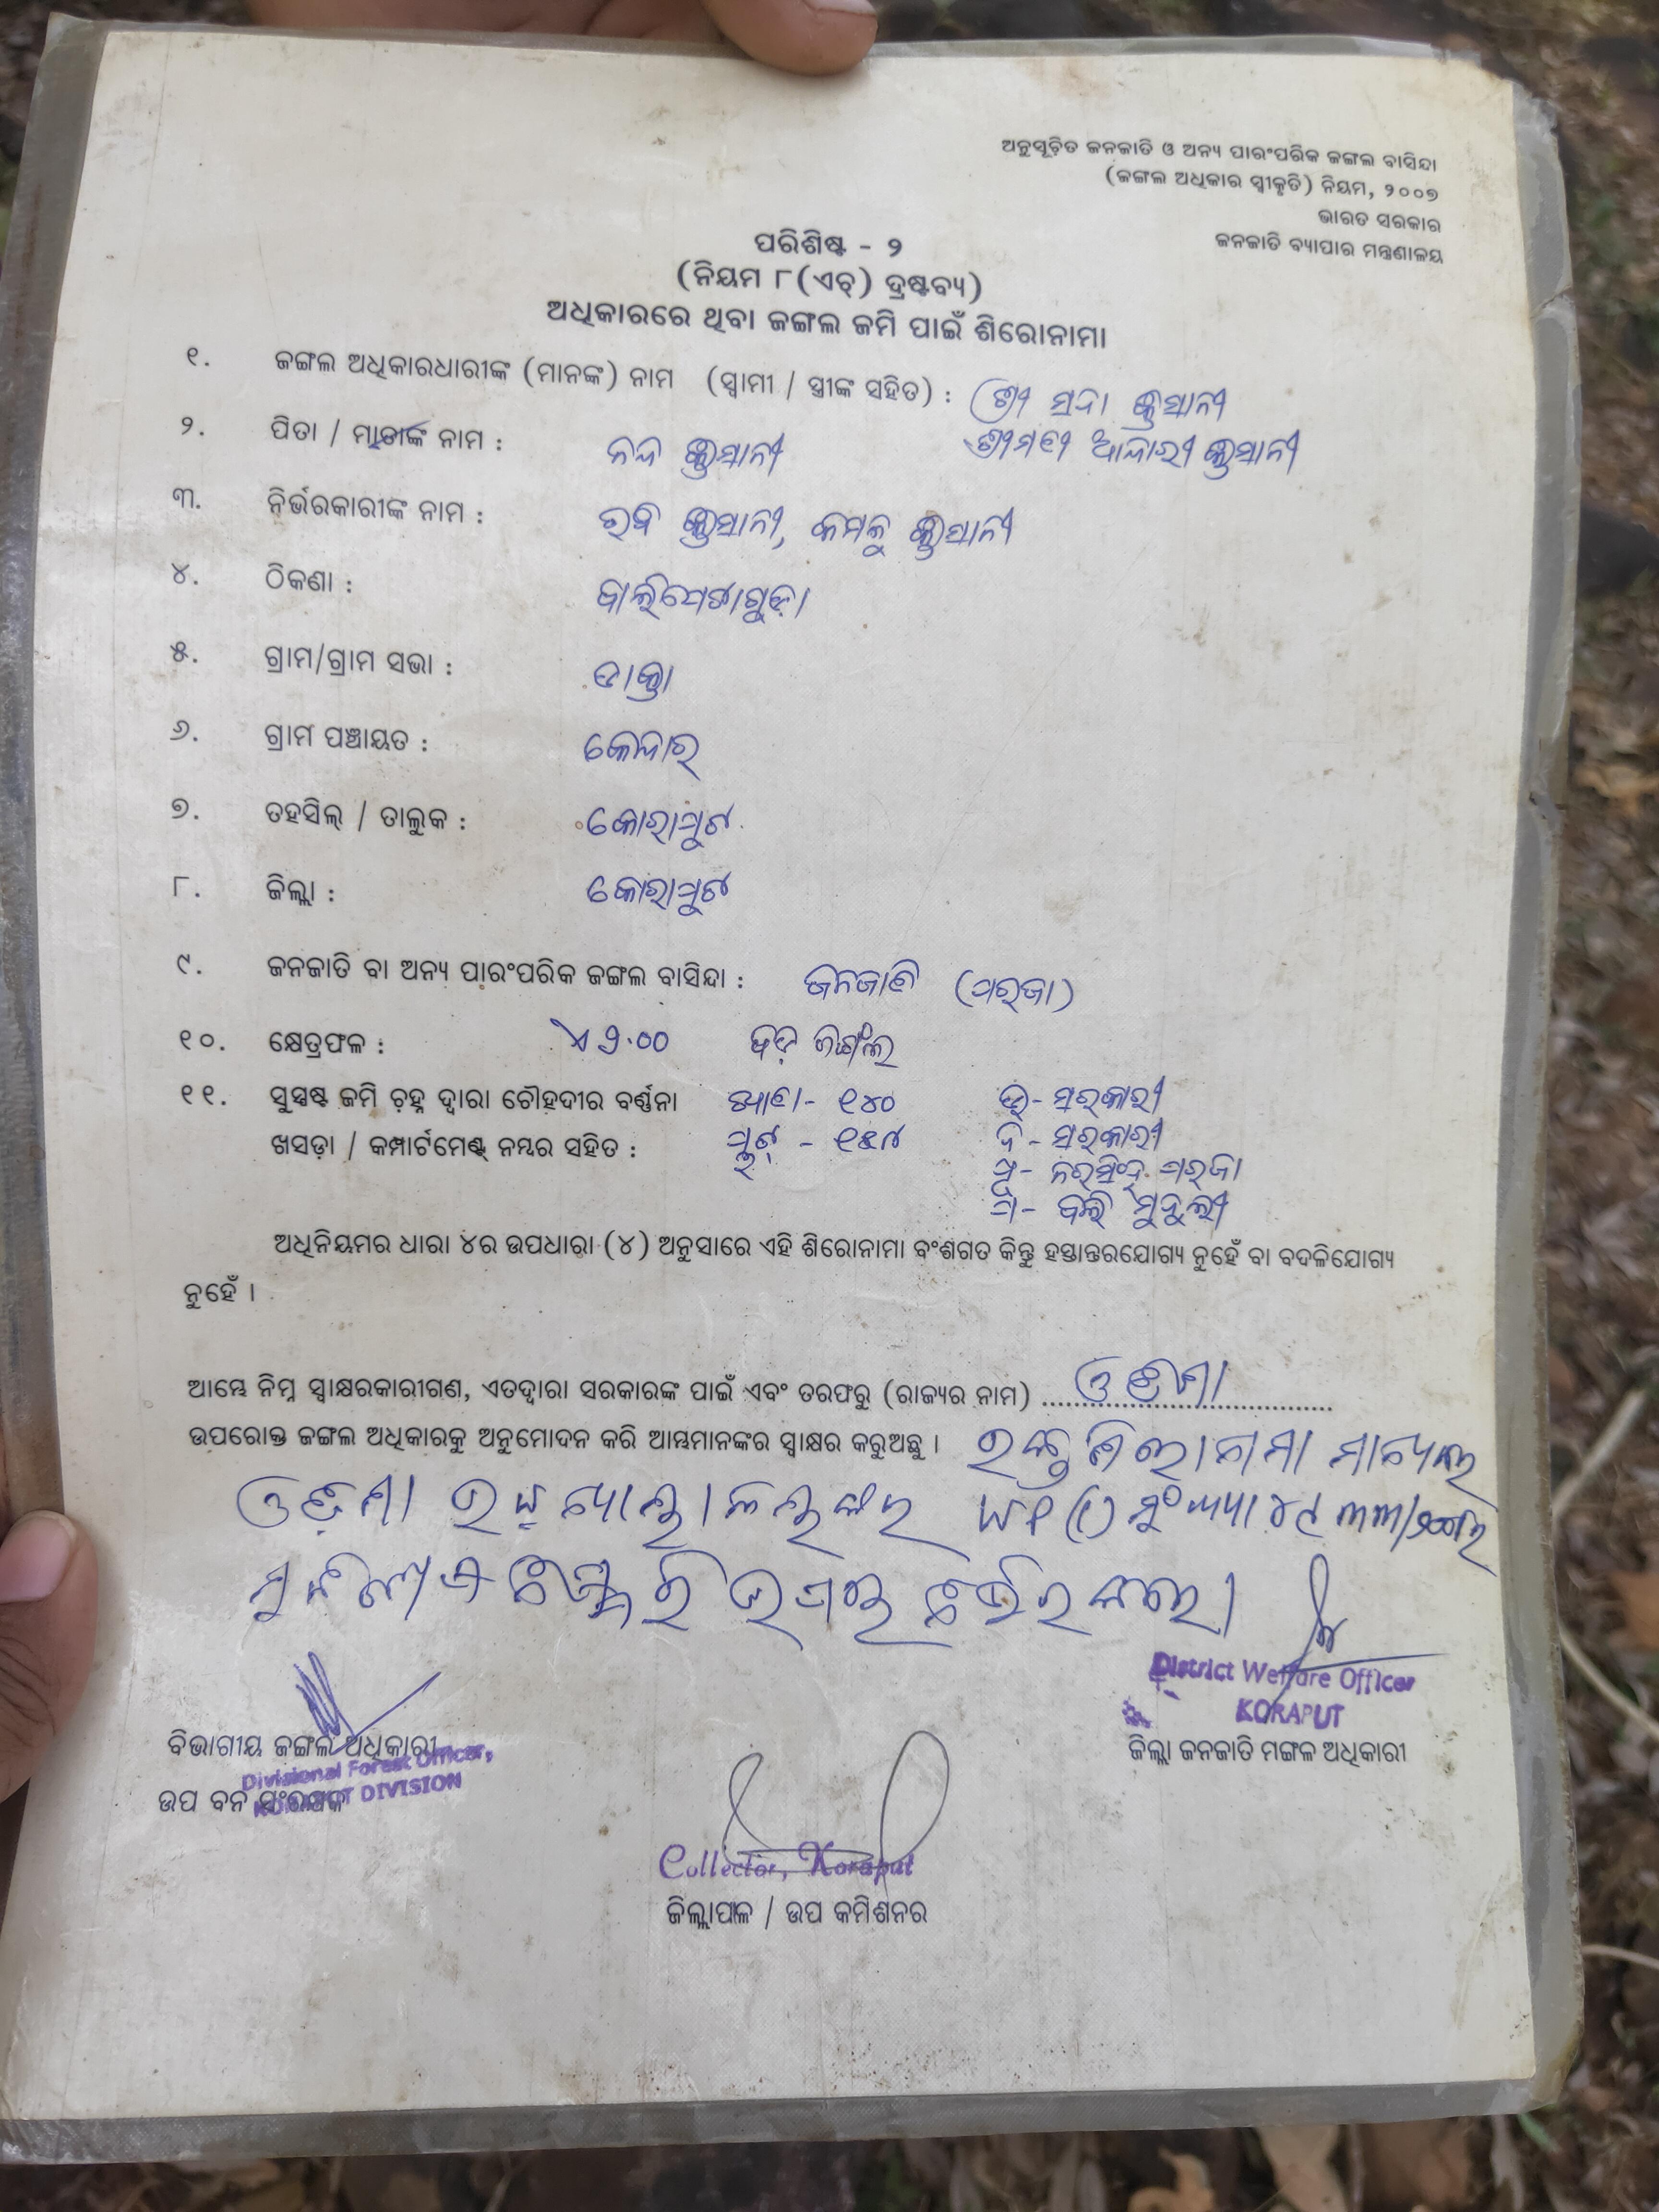 ଅନୁସୂଚିତ ଜନଜାତି ଓ ଅନ୍ୟ ପାରଂପରିକ ଜଙ୍ଗଲ ବାସିନ୍ଦା
(ଜଙ୍ଗଲ ଅଧିକାର ସ୍ୱୀକୃତି) ନିୟମ, ୨୦୦୭
ଭାରତ ସରକାର
ଜନଜାତି ବ୍ୟାପାର ମନ୍ତ୍ରଣାଳୟ
ପରିଶିଷ୍ଟ - ୨
(ନିୟମ ୮(ଏଚ୍) ଦ୍ରଷ୍ଟବ୍ୟ)
ଅଧିକାରରେ ଥିବା ଜଙ୍ଗଲ ଜମି ପାଇଁ ଶିରୋନାମା
୧. ଜଙ୍ଗଲ ଅଧିକାରଧାରୀଙ୍କ (ମାନଙ୍କ) ନାମ (ସ୍ୱାମୀ / ସ୍ତ୍ରୀଙ୍କ ସହିତ) : ଶ୍ରୀ
୨. ପିତା / ମାତାଙ୍କ ନାମ : ଶ୍ରୀମତୀ
୩. ନିର୍ଭରକାରୀଙ୍କ ନାମ : ରବି
୪. ଠିକଣା : ବାଲିପେଟାଗୁଡ଼ା
୫. ଗ୍ରାମ/ଗ୍ରାମ ସଭା :
୬. ଗ୍ରାମ ପଞ୍ଚାୟତ : କେନ୍ଦାର୍
୭. ତହସିଲ୍ / ତାଲୁକ : କୋରାପୁଟ
୮. ଜିଲ୍ଲା : କୋରାପୁଟ
୯. ଜନଜାତି ବା ଅନ୍ୟ ପାରଂପରିକ ଜଙ୍ଗଲ ବାସିନ୍ଦା : ଜନଜାତି (ପରଜା)
୧୦. କ୍ଷେତ୍ରଫଳ : ଏ ୨.୦୦ ଜଙ୍ଗଲ
୧୧. ସୁସ୍ପଷ୍ଟ ଜମି ଚ଼ହ୍ନ ଦ୍ୱାରା ଚୌହଦୀର ବର୍ଣ୍ଣନା ଖାତା- ୧୪୦ ଉ- ସରକାରୀ
ଖସଡ଼ା / କମ୍ପାର୍ଟମେଣ୍ଟ୍ ନମ୍ବର ସହିତ : ପ୍ଲଟ୍ - ଦ- ସରକାରୀ
ପୂ- ନରସିଂହ ପରଜା
ପ- ବଲି ମୁଦୁଲୀ
ଅଧିନିୟମର ଧାରା ୪ର ଉପଧାରା (୪) ଅନୁସାରେ ଏହି ଶିରୋନାମା ବଂଶଗତ କିନ୍ତୁ ହସ୍ତାନ୍ତରଯୋଗ୍ୟ ନୁହେଁ ବା ବଦଳିଯୋଗ୍ୟ
ନୁହେଁ ।
ଆମ୍ଭେ ନିମ୍ନ ସ୍ୱାକ୍ଷରକାରୀଗଣ, ଏତଦ୍ୱାରା ସରକାରଙ୍କ ପାଇଁ ଏବଂ ତରଫରୁ (ରାଜ୍ୟର ନାମ) ଓଡିଶା
ଉପରୋକ୍ତ ଜଙ୍ଗଲ ଅଧିକାରକୁ ଅନୁମୋଦନ କରି ଆମ୍ଭମାନଙ୍କର ସ୍ୱାକ୍ଷର କରୁଅଛୁ । ଉକ୍ତ ଶିରୋନାମା ମାନ୍ୟବର
ଓଡ଼ିଶା
District Welfare Officer
KORAPUT
ଜିଲ୍ଲା ଜନଜାତି ମଙ୍ଗଳ ଅଧିକାରୀ
ବିଭାଗୀୟ ଜଙ୍ଗଲ ଅଧିକାରୀ
Divisional Forest Officer,
KORAPUT DIVISION
ଉପ ବନ ସଂରକ୍ଷକ
Collector, Koraput
ଜିଲ୍ଲାପାଳ / ଉପ କମିଶନର